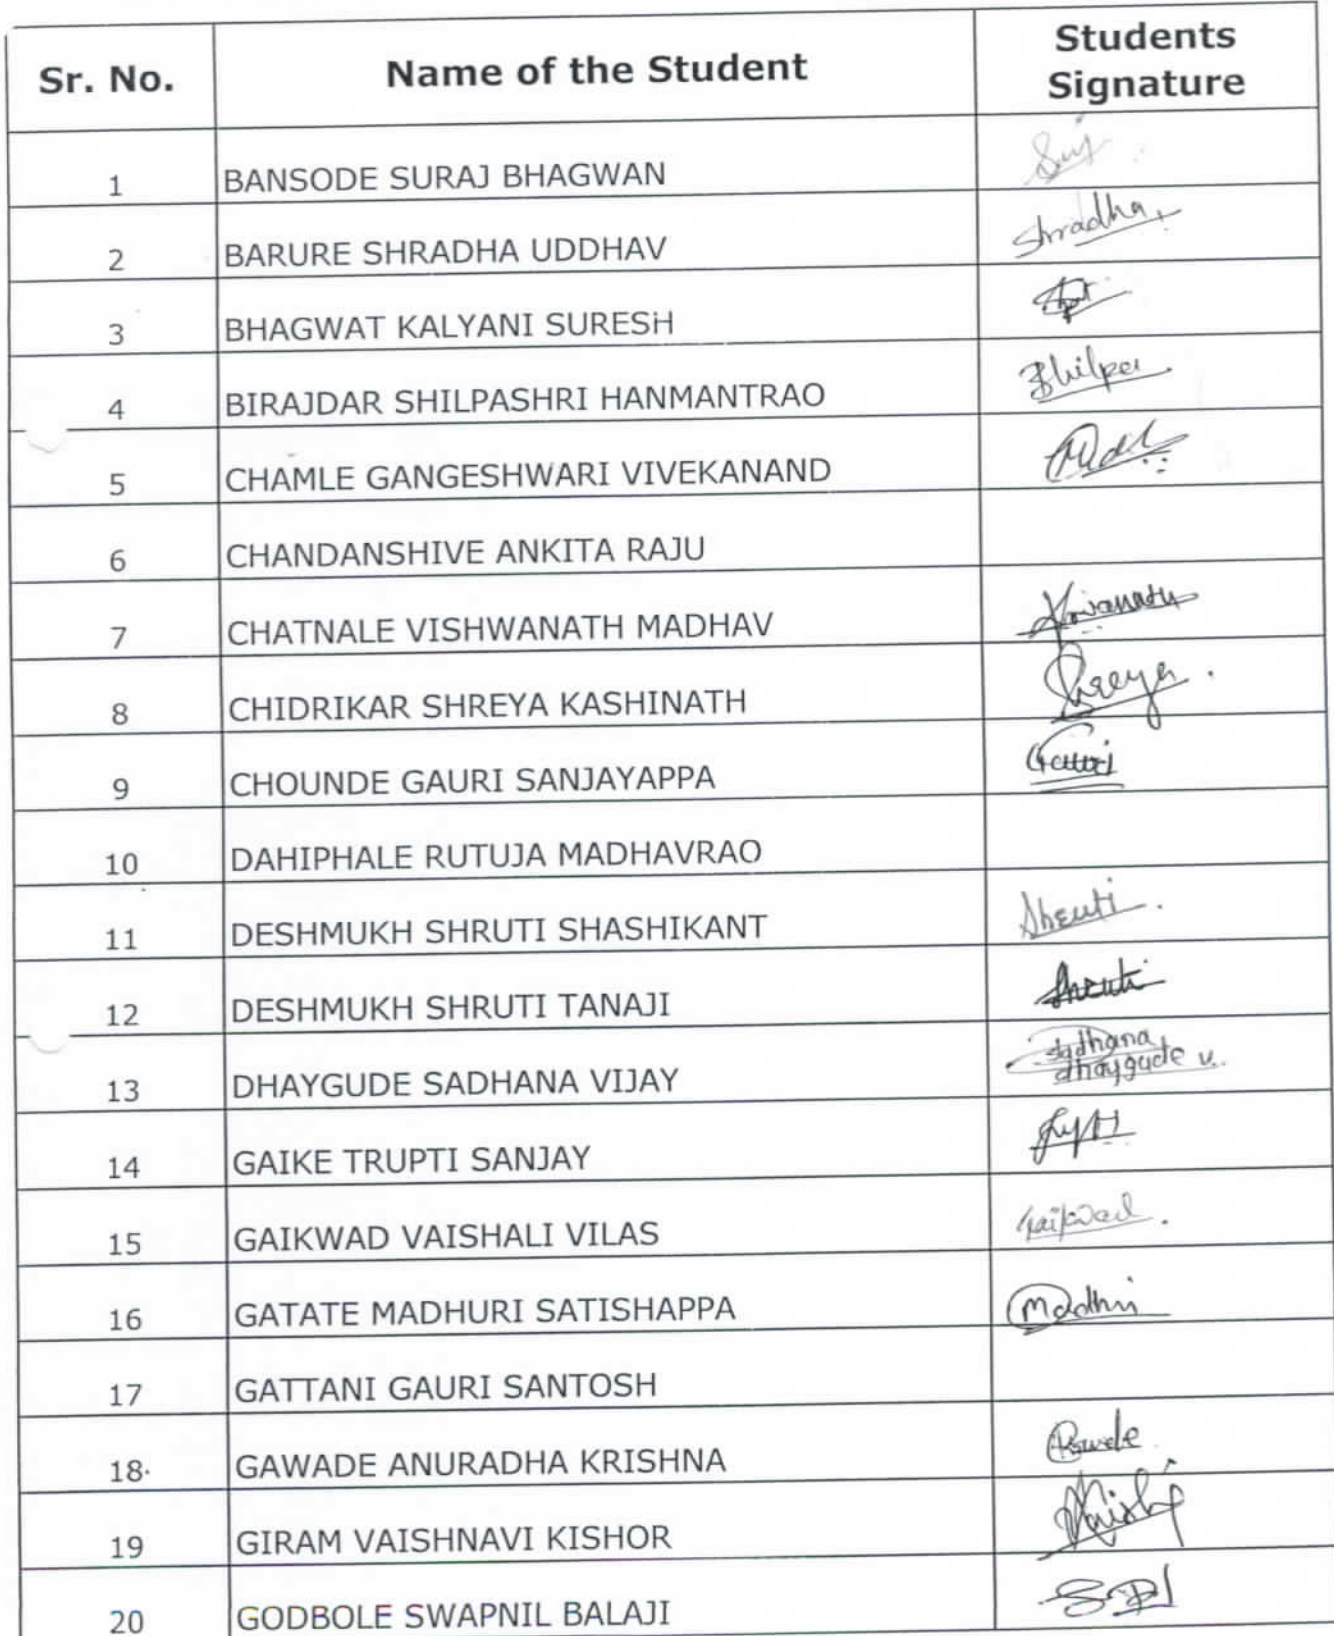 Sr. No. Name of the Student Students Signature
1 BANSODE SURAJ BHAGWAN
2 BARURE SHRADHA UDDHAV Shradha
3 BHAGWAT KALYANI SURESH
4 BIRAJDAR SHILPASHRI HANMANTRAO Shilpa
5 CHAMLE GANGESHWARI VIVEKANAND
6 CHANDANSHIVE ANKITA RAJU
7 CHATNALE VISHWANATH MADHAV
8 CHIDRIKAR SHREYA KASHINATH Shreya.
9 CHOUNDE GAURI SANJAYAPPA Gauri
10 DAHIPHALE RUTUJA MADHAVRAO
11 DESHMUKH SHRUTI SHASHIKANT Shruti.
12 DESHMUKH SHRUTI TANAJI Shruti
13 DHAYGUDE SADHANA VIJAY Sadhana
dhaygude v.
14 GAIKE TRUPTI SANJAY
15 GAIKWAD VAISHALI VILAS Gaikwad.
16 GATATE MADHURI SATISHAPPA Madhuri
17 GATTANI GAURI SANTOSH
18. GAWADE ANURADHA KRISHNA
19 GIRAM VAISHNAVI KISHOR
20 GODBOLE SWAPNIL BALAJI